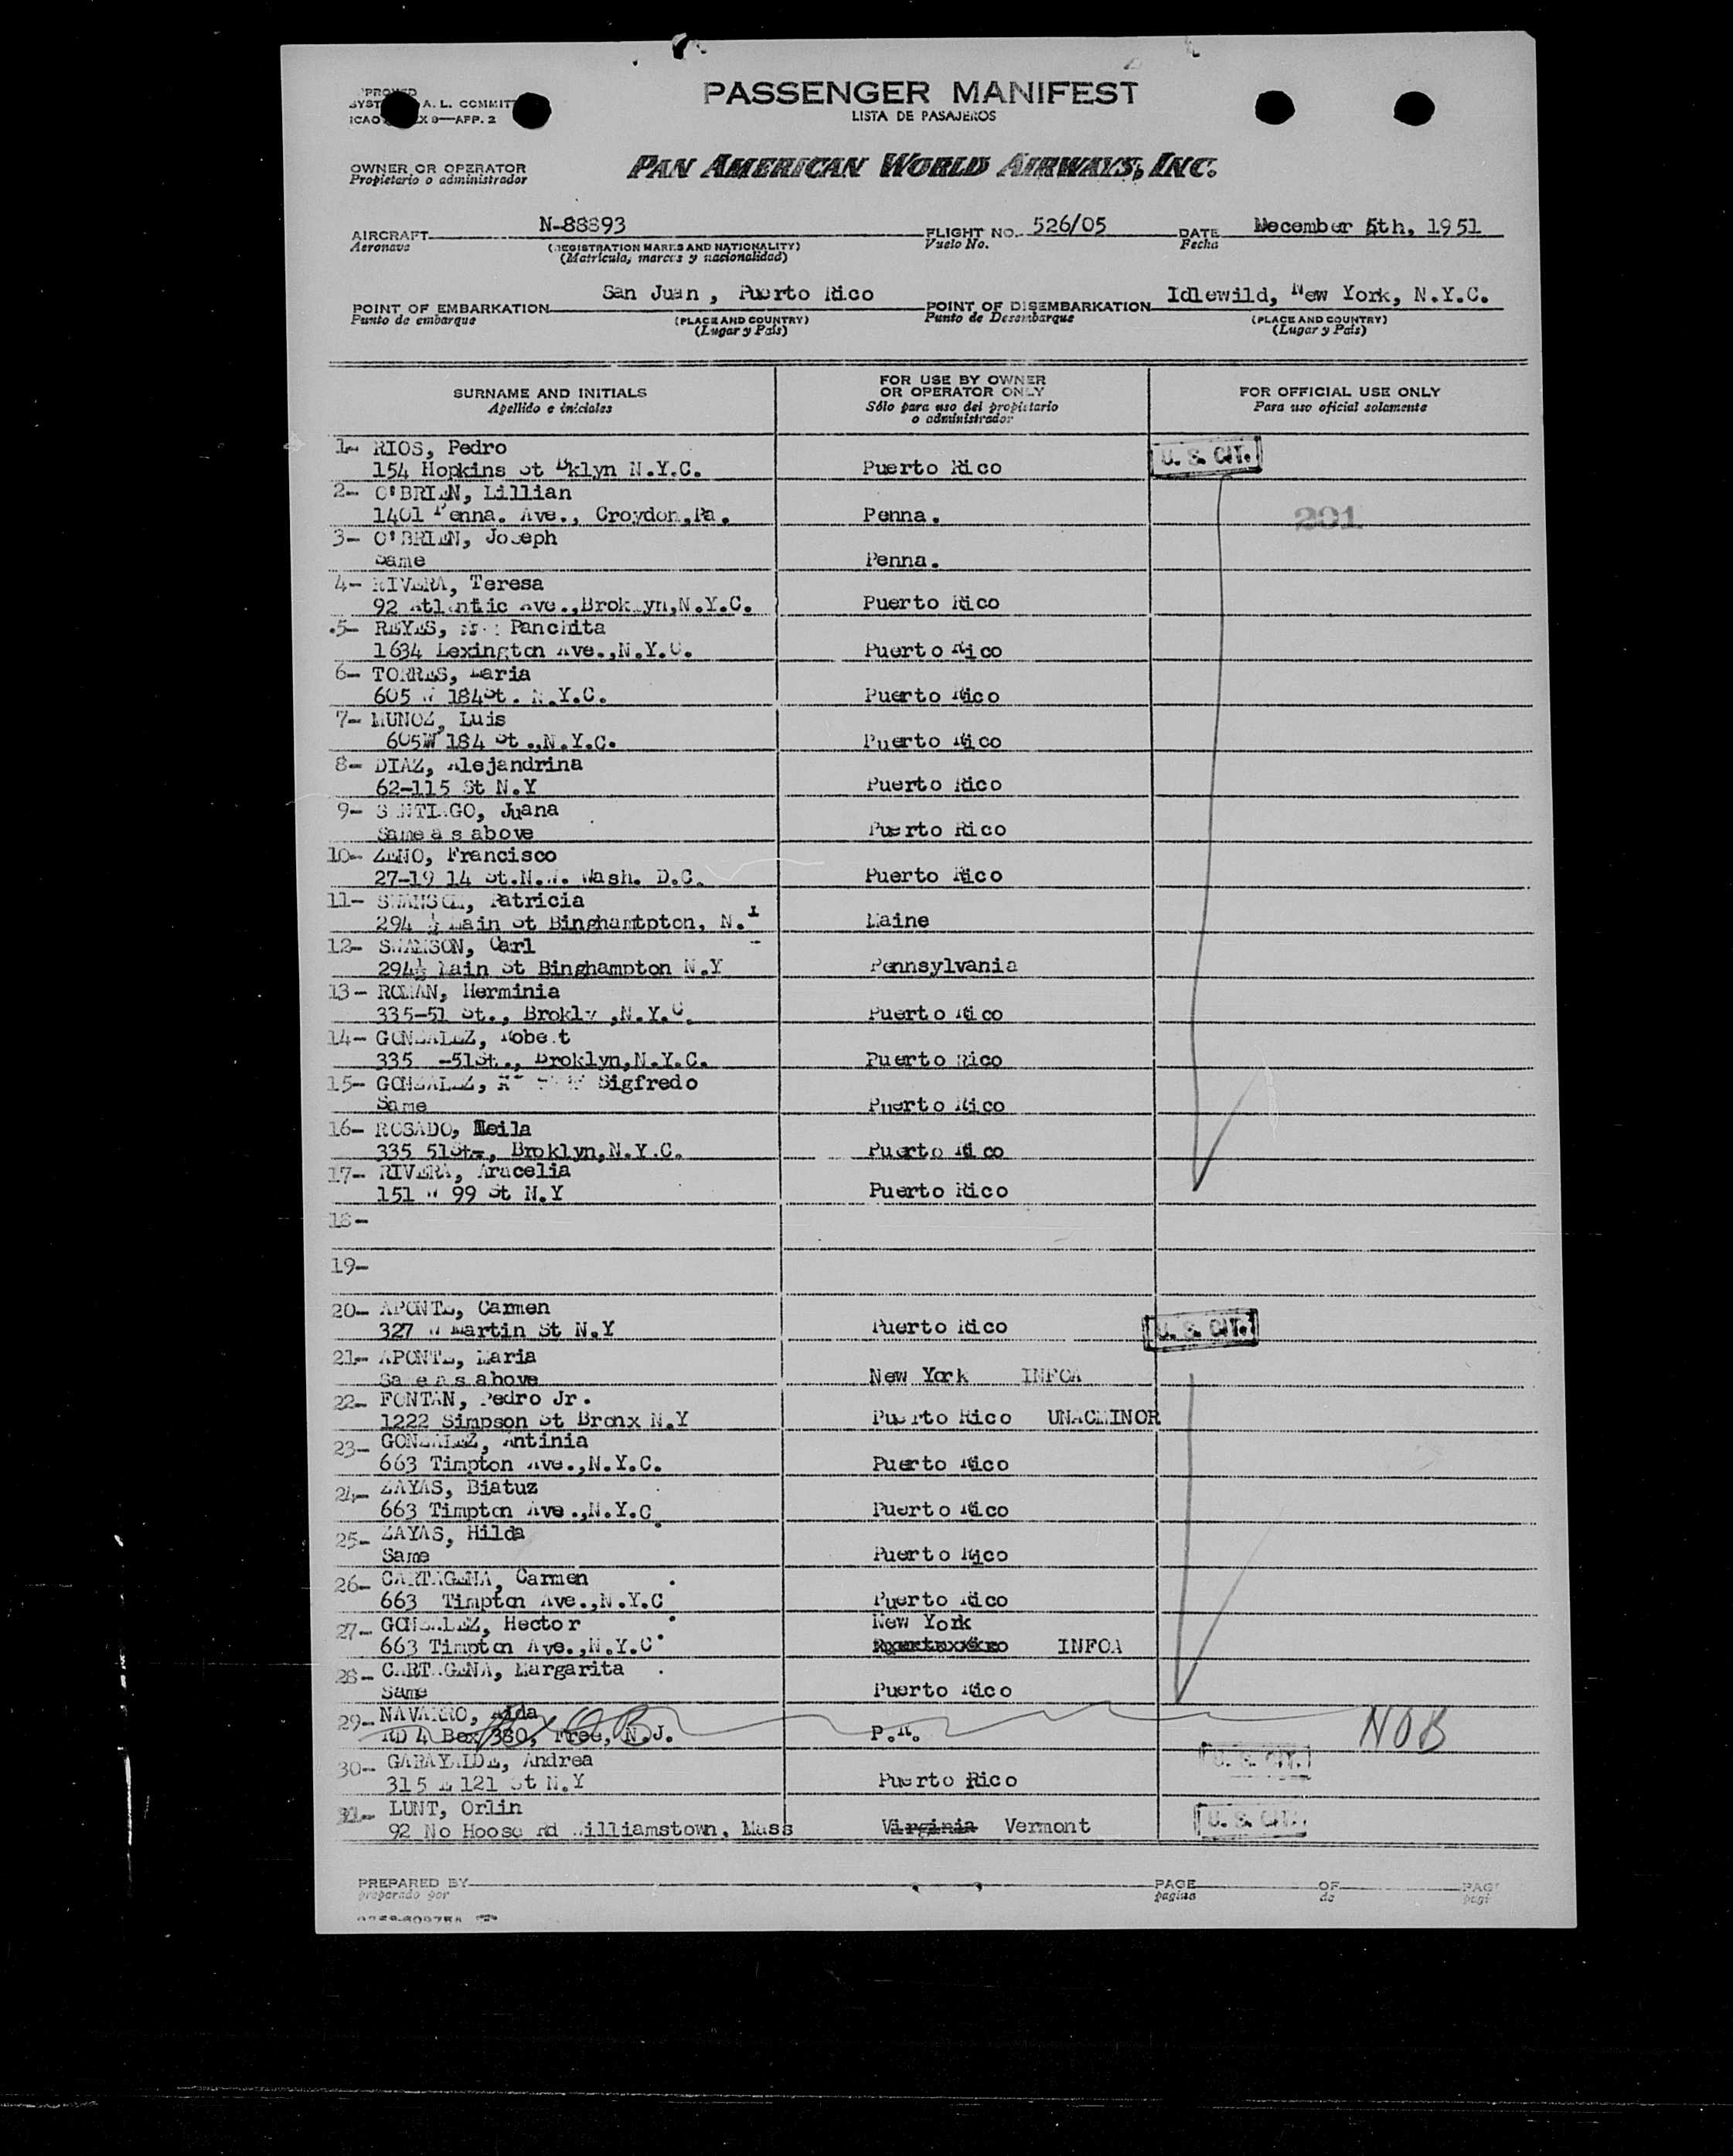 PASSENGER MANIFEST
LISTA DE PASAJEROS
A. L. COMMIT
ICAO X 9—APP. 2
OWNER OR OPERATOR
Propietario o administrador
PAN AMERICAN WORLD AIRWAYS, INC.
AIRCRAFT N-88893 FLIGHT NO. 526/05 DATE December 5th, 1951
Aeronave (REGISTRATION MARKS AND NATIONALITY) Vuelo No. Fecha
(Matrícula, marcas y nacionalidad)
POINT OF EMBARKATION San Juan, Puerto Rico POINT OF DISEMBARKATION Idlewild, New York, N.Y.C.
Punto de embarque (PLACE AND COUNTRY) Punto de Desembarque (PLACE AND COUNTRY)
(Lugar y País) (Lugar y País)
SURNAME AND INITIALS
Apellido e iniciales
FOR USE BY OWNER
OR OPERATOR ONLY
Sólo para uso del propietario
o administrador
FOR OFFICIAL USE ONLY
Para uso oficial solamente
1- RIOS, Pedro
154 Hopkins St Bklyn N.Y.C. Puerto Rico U. S. CIT.
2- O'BRIEN, Lillian
1401 Penna. Ave., Croydon,Pa. Penna. 201
3- O'BRIEN, Joseph
Same Penna.
4- RIVERA, Teresa
92 Atlantic Ave.,Broklyn,N.Y.C. Puerto Rico
5- REYES, Panchita
1634 Lexington Ave.,N.Y.C. Puerto Rico
6- TORRES, Maria
605 W 184St. N.Y.C. Puerto Rico
7- MUNOZ, Luis
605W 184 St.,N.Y.C. Puerto Rico
8- DIAZ, Alejandrina
62-115 St N.Y Puerto Rico
9- SANTIAGO, Juana
Same as above Puerto Rico
10- ZENO, Francisco
27-19 14 St.N.W. Wash. D.C. Puerto Rico
11- SWANSON, Patricia
294 ½ Main St Binghamtpton, N.Y Maine
12- SWANSON, Carl
294½ Main St Binghampton N.Y Pennsylvania
13- ROMAN, Herminia
335-51 St., Brokly ,N.Y.C. Puerto Rico
14- GONZALEZ, Robert
335 -51St., Broklyn,N.Y.C. Puerto Rico
15- GONZALEZ, Sigfredo
Same Puerto Rico
16- ROSADO, Neila
335 51St., Broklyn,N.Y.C. Puerto Rico
17- RIVERA, Aracelia
151 W 99 St N.Y Puerto Rico
18-
19-
20- APONTE, Carmen
327 W Martin St N.Y Puerto Rico U. S. CIT.
21- APONTE, Maria
Same as above New York INFOA
22- FONTAN, Pedro Jr.
1222 Simpson St Bronx N.Y Puerto Rico UNACMINOR
23- GONZALEZ, Antinia
663 Timpton Ave.,N.Y.C. Puerto Rico
24- ZAYAS, Biatuz
663 Timpton Ave.,N.Y.C Puerto Rico
25- ZAYAS, Hilda
Same Puerto Rico
26- CARTAGENA, Carmen
663 Timpton Ave.,N.Y.C Puerto Rico
27- GONZALEZ, Hector New York
663 Timpton Ave.,N.Y.C INFOA
28- CARTAGENA, Margarita
Same Puerto Rico
29- NAVARRO, Aida NOB
RD 4 Box 380, Free, N.J. P.R. NOB
30- GARAYALDE, Andrea U. S. CIT.
315 E 121 St N.Y Puerto Rico
31- LUNT, Orlin
92 No Hoose Rd Williamstown, Mass Virginia Vermont U. S. CIT.
PREPARED BY PAGE OF PAG
preparado por página de pági